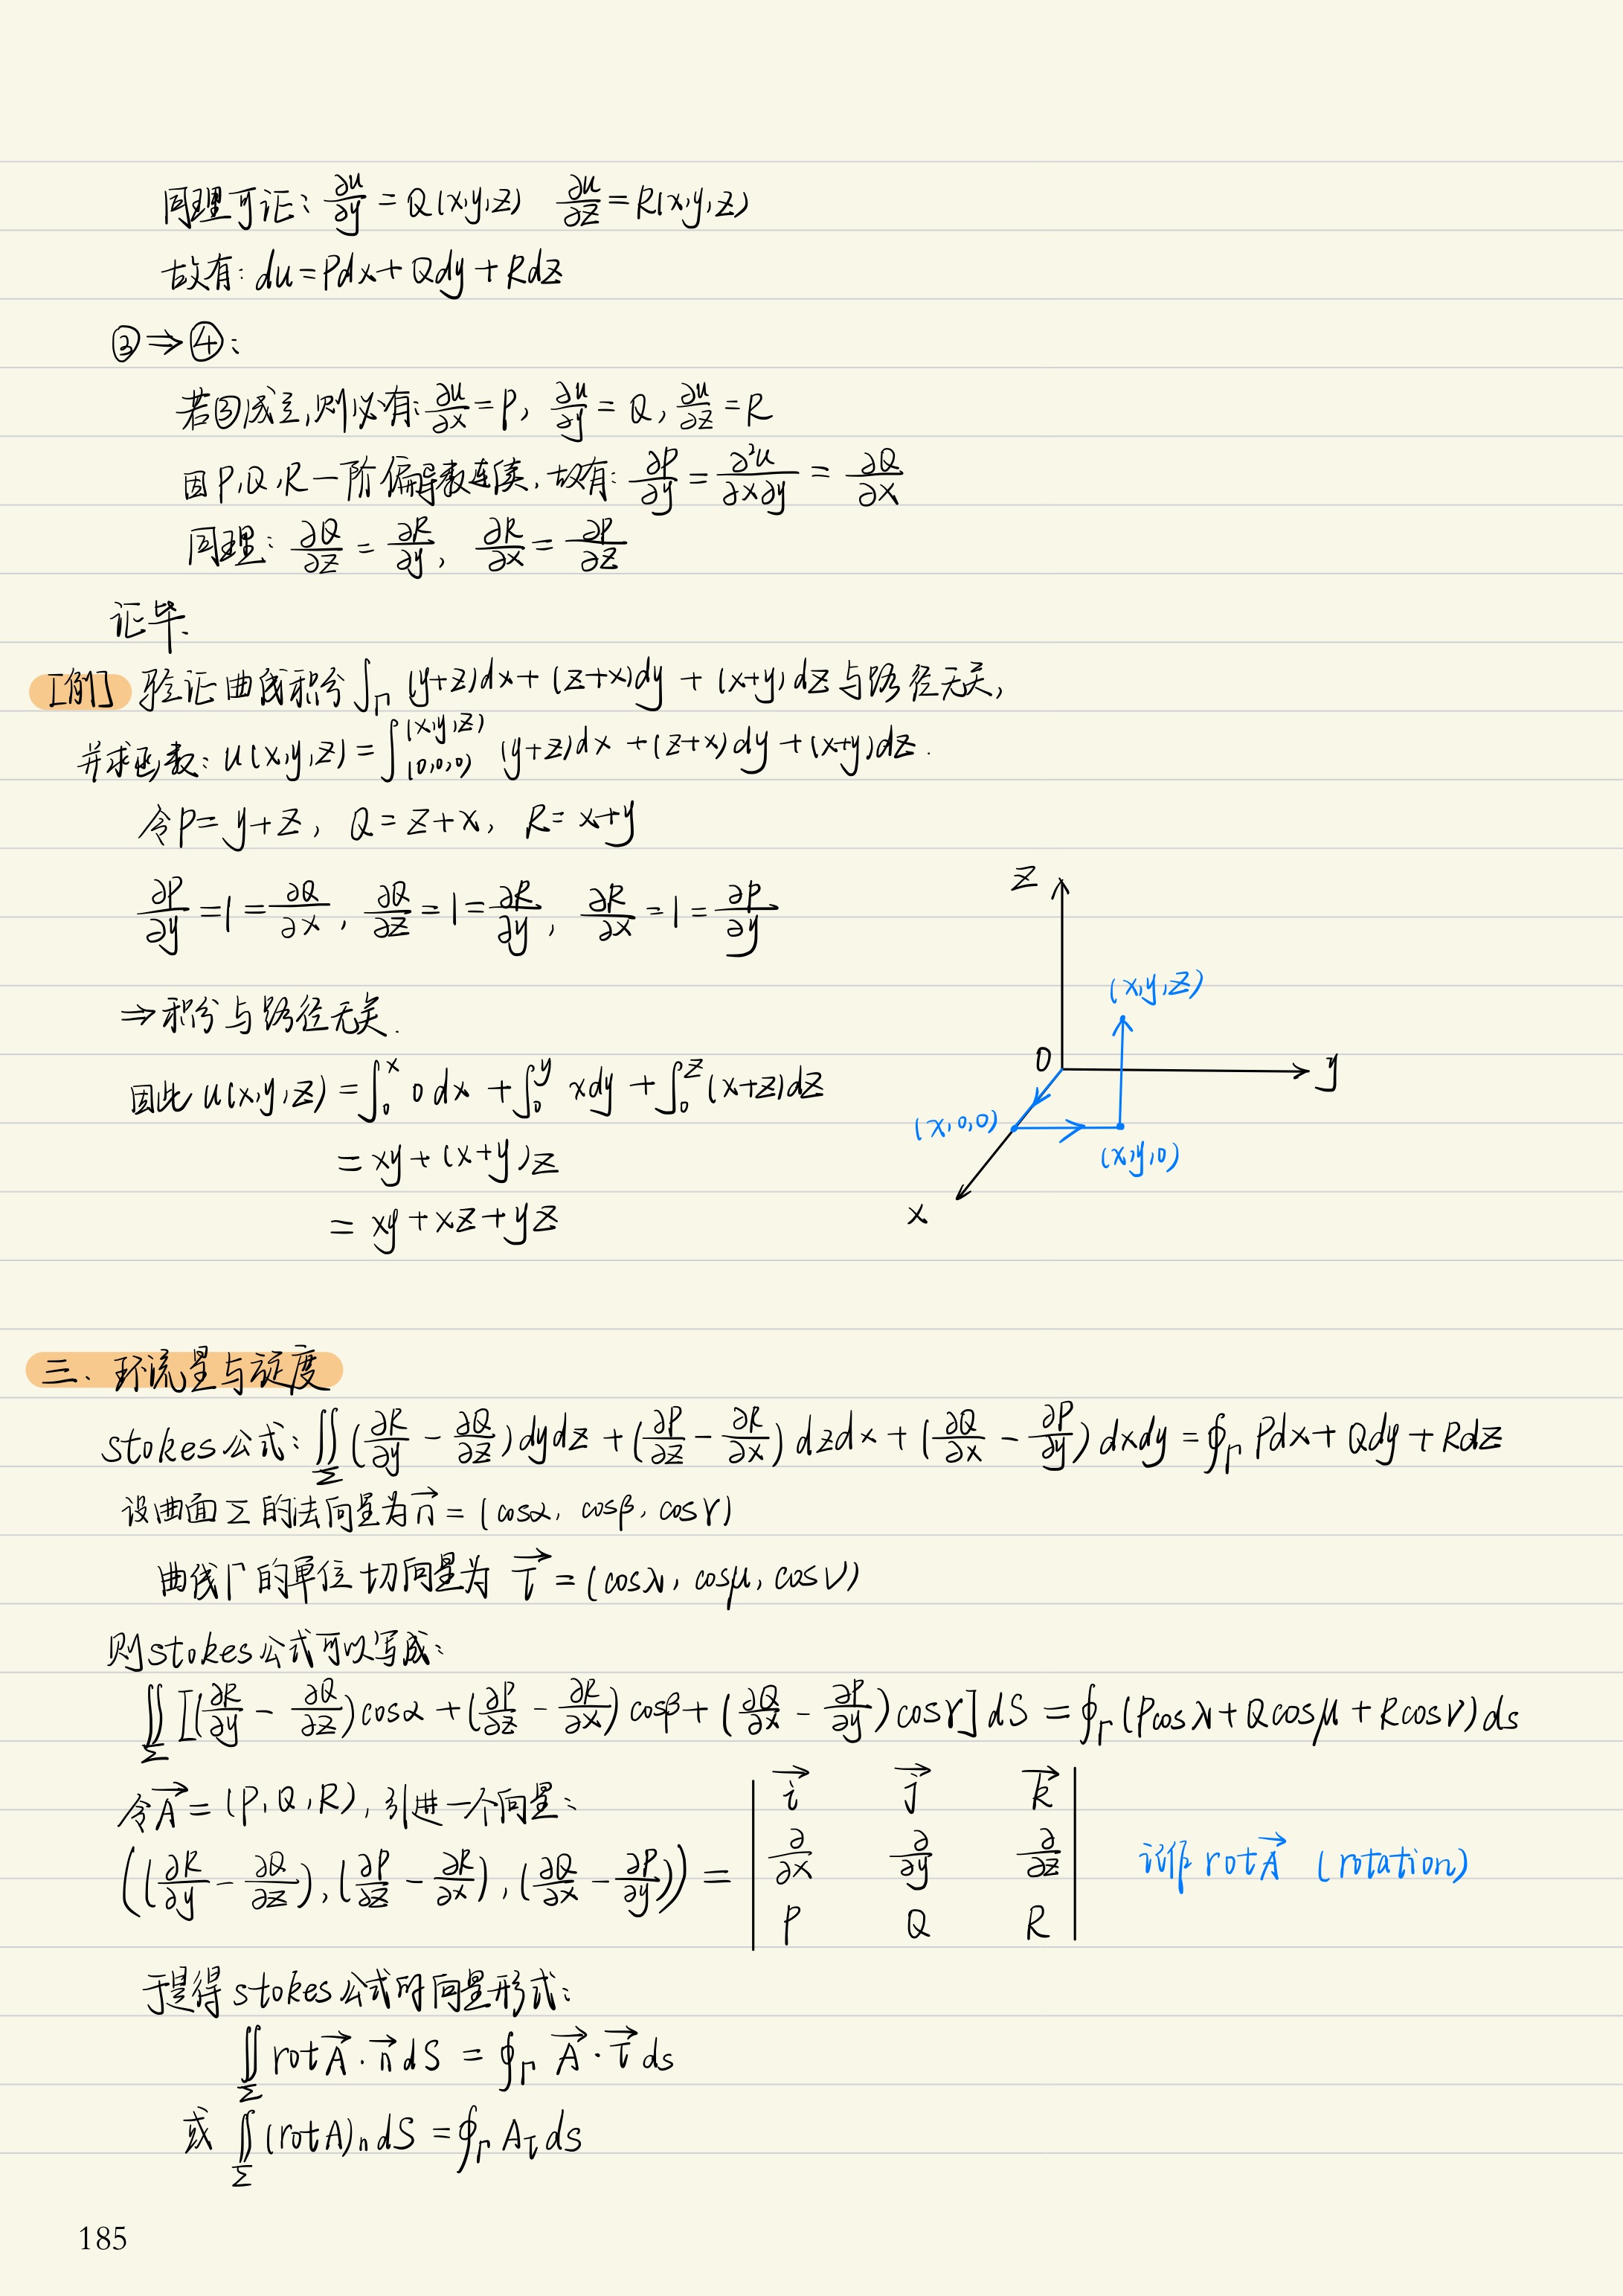 同理可证: ∂u/∂y = Q(x,y,z) ∂u/∂z = R(x,y,z)
故有: du = Pdx + Qdy + Rdz
③⇒④:
若③成立,则必有: ∂u/∂x = P, ∂u/∂y = Q, ∂u/∂z = R
因P,Q,R一阶偏导数连续,故有: ∂P/∂y = ∂²u/∂x∂y = ∂Q/∂x
同理: ∂Q/∂z = ∂R/∂y, ∂R/∂x = ∂P/∂z
证毕.
[例] 验证曲线积分 ∫_Γ (y+z)dx + (z+x)dy + (x+y)dz 与路径无关,
并求函数: u(x,y,z) = ∫_(0,0,0)^(x,y,z) (y+z)dx + (z+x)dy + (x+y)dz.
令P = y+z, Q = z+x, R = x+y
∂P/∂y = 1 = ∂Q/∂x, ∂Q/∂z = 1 = ∂R/∂y, ∂R/∂x = 1 = ∂P/∂y
⇒积分与路径无关.
因此 u(x,y,z) = ∫_0^x 0 dx + ∫_0^y xdy + ∫_0^z (x+z)dz
= xy + (x+y)z
= xy + xz + yz
z
(x,y,z)
O
y
(x,0,0)
(x,y,0)
x
三. 环流量与旋度
stokes公式: ∬_Σ (∂R/∂y - ∂Q/∂z)dydz + (∂P/∂z - ∂R/∂x)dzdx + (∂Q/∂x - ∂P/∂y)dxdy = ∮_Γ Pdx + Qdy + Rdz
设曲面Σ的法向量为 n⃗ = (cosα, cosβ, cosγ)
曲线Γ的单位切向量为 τ⃗ = (cosλ, cosμ, cosν)
则stokes公式可以写成:
∬_Σ [(∂R/∂y - ∂Q/∂z)cosα + (∂P/∂z - ∂R/∂x)cosβ + (∂Q/∂x - ∂P/∂y)cosγ]dS = ∮_Γ (Pcosλ + Qcosμ + Rcosν)ds
令A⃗ = (P,Q,R), 引进一个向量:
((∂R/∂y - ∂Q/∂z), (∂P/∂z - ∂R/∂x), (∂Q/∂x - ∂P/∂y)) = | i⃗ j⃗ k⃗ |
| ∂/∂x ∂/∂y ∂/∂z | 记作 rotA⃗ (rotation)
| P Q R |
于是得stokes公式的向量形式:
∬_Σ rotA⃗·n⃗dS = ∮_Γ A⃗·τ⃗ds
或 ∬_Σ (rotA)_n dS = ∮_Γ A_τ ds
185